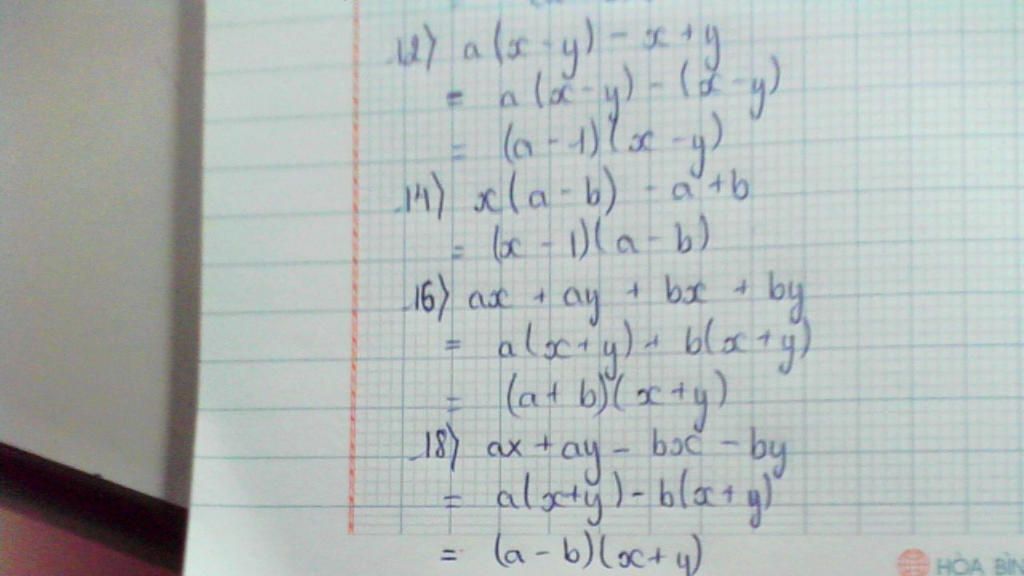 12) a(x-y) - x + y
= a(x-y) - (x-y)
= (a-1)(x-y)
14) x(a-b) - a + b
= (x-1)(a-b)
16) ax + ay + bx + by
= a(x+y) + b(x+y)
= (a+b)(x+y)
18) ax + ay - bx - by
= a(x+y) - b(x+y)
= (a-b)(x+y)